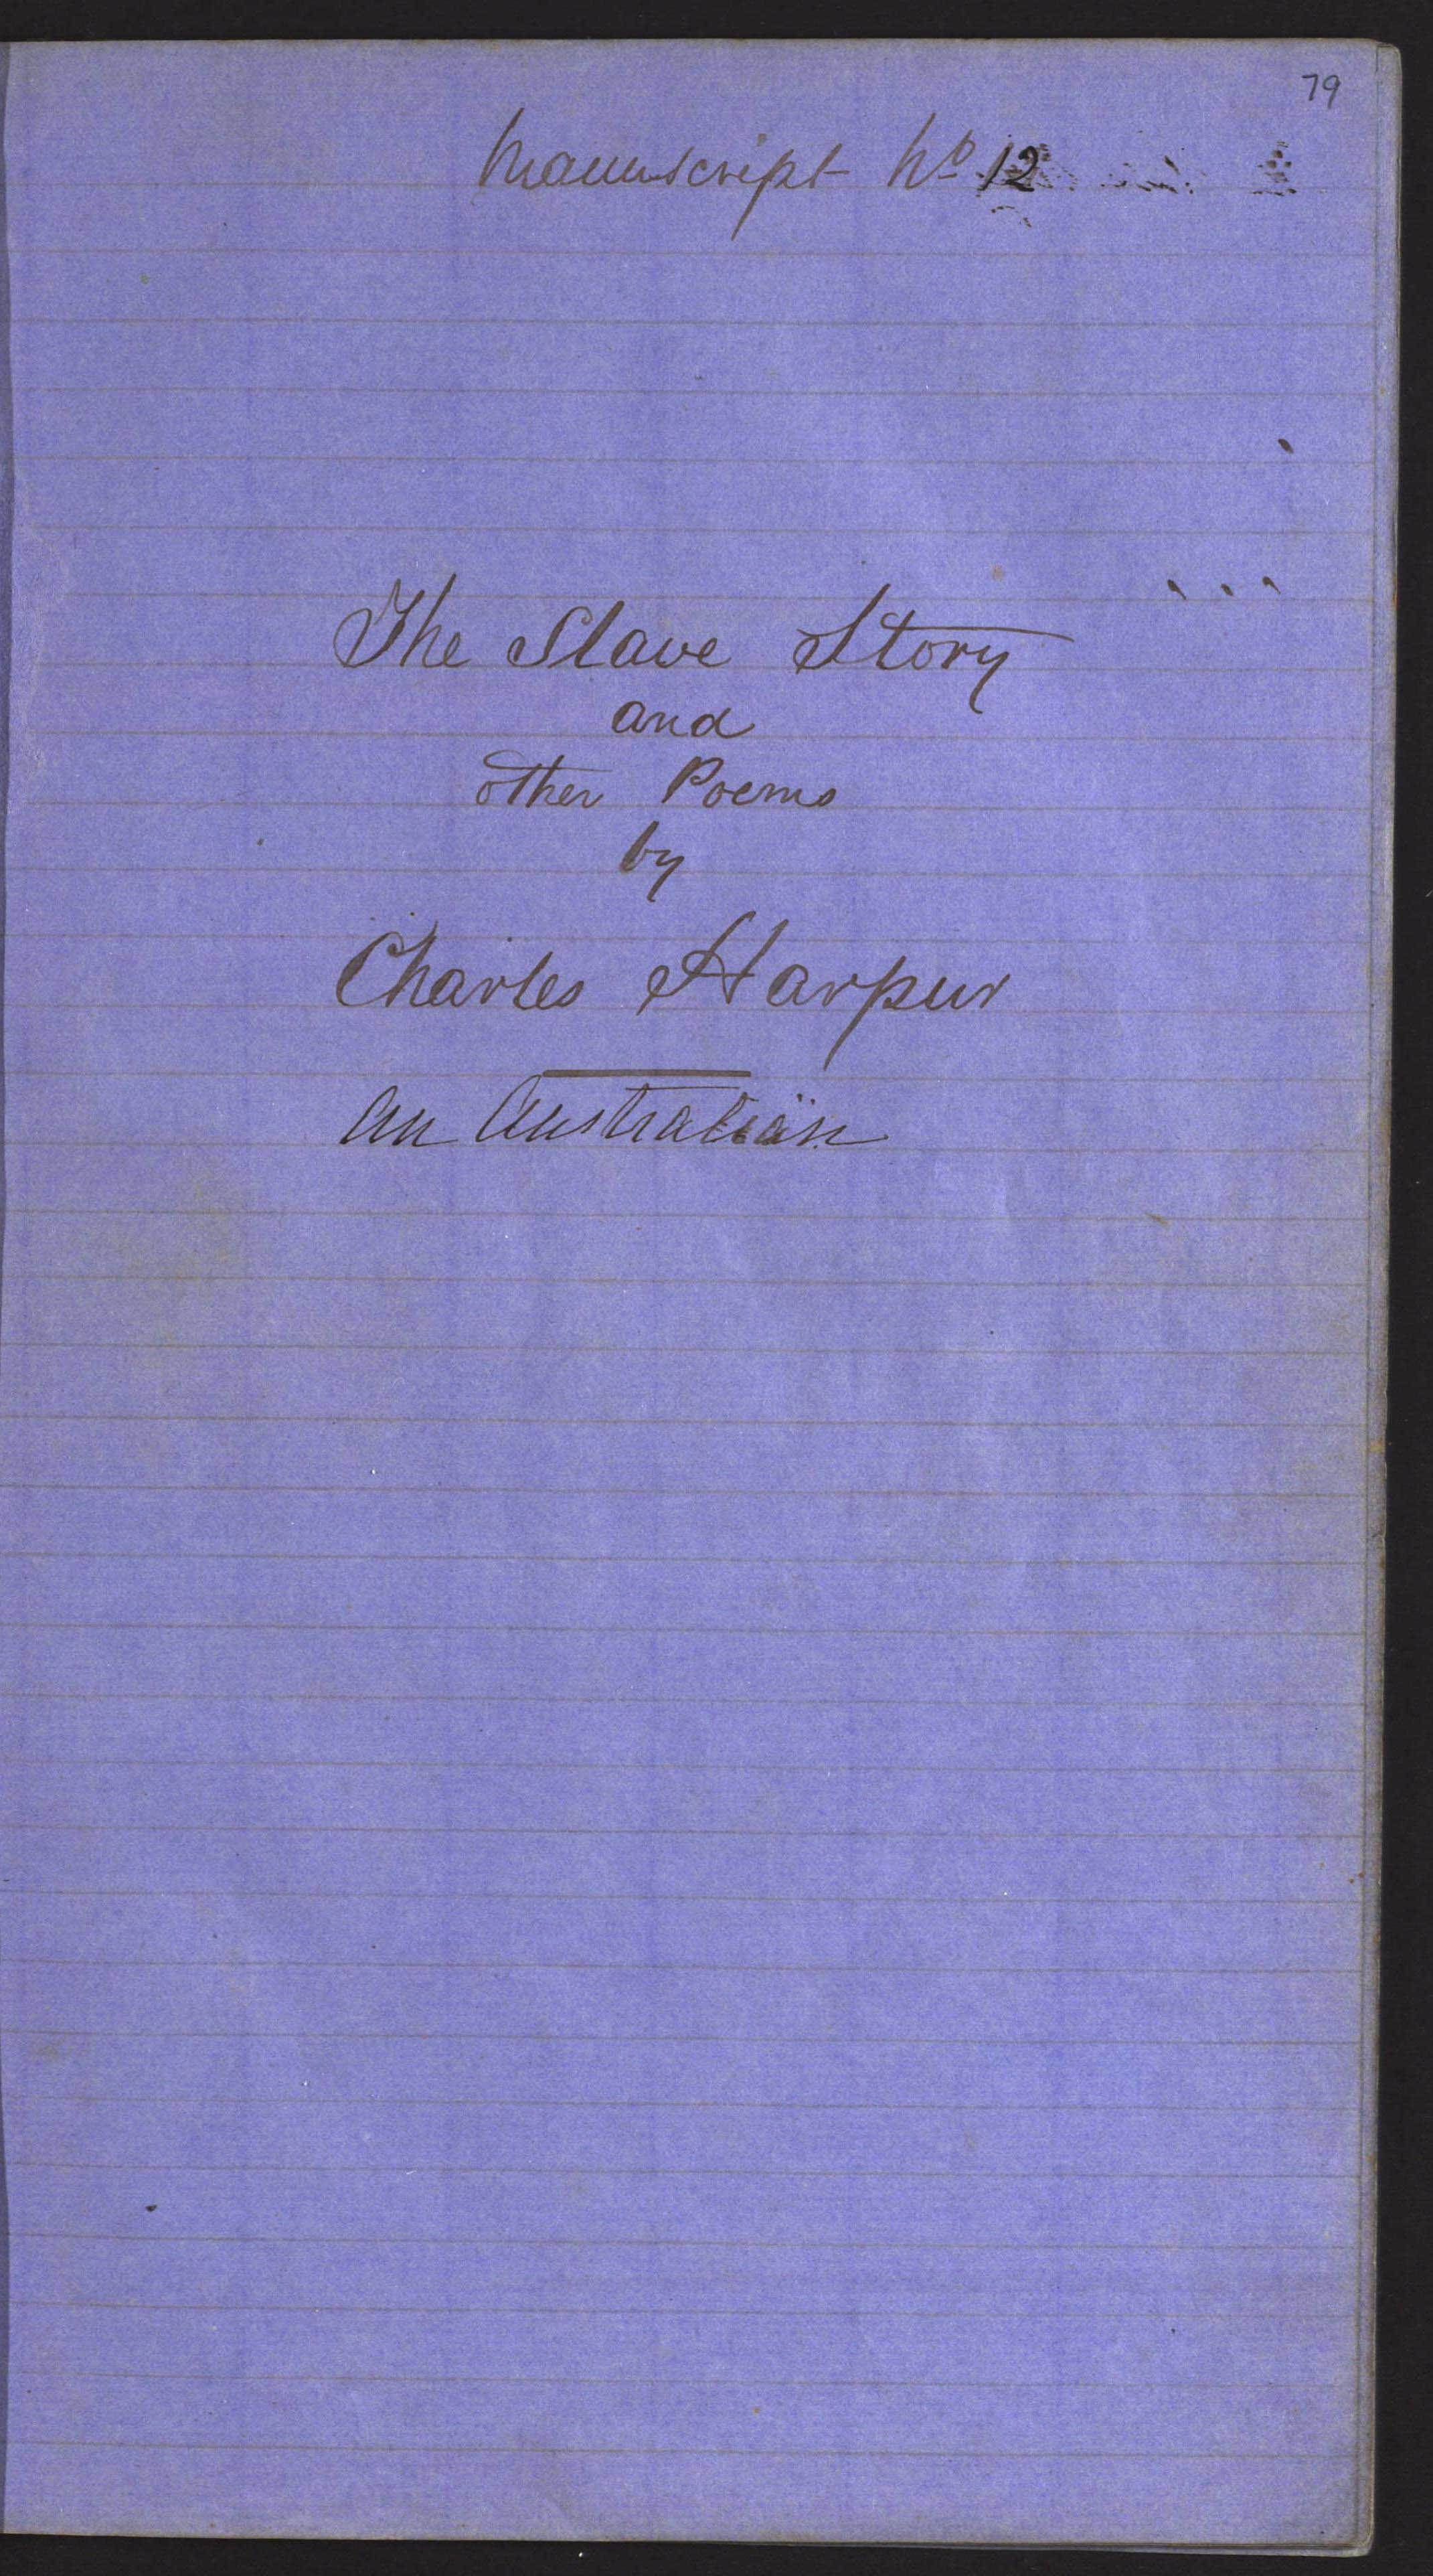 79
Manuscript No 12
The Slave Story
and
other Poems
by
Charles Harpur
An Australian